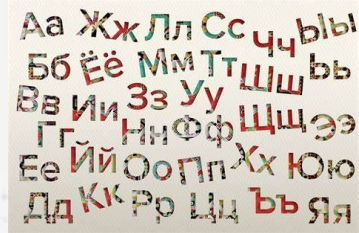 Аа Жж Лл Сс Чч Ыы
Бб Ёё Мм Тт Шш Ьь
Вв Ии Зз Уу Щщ Ээ
Гг Нн Фф
Ее Йй Оо Пп Хх Юю
Дд Кк Рр Цц Ъъ Яя